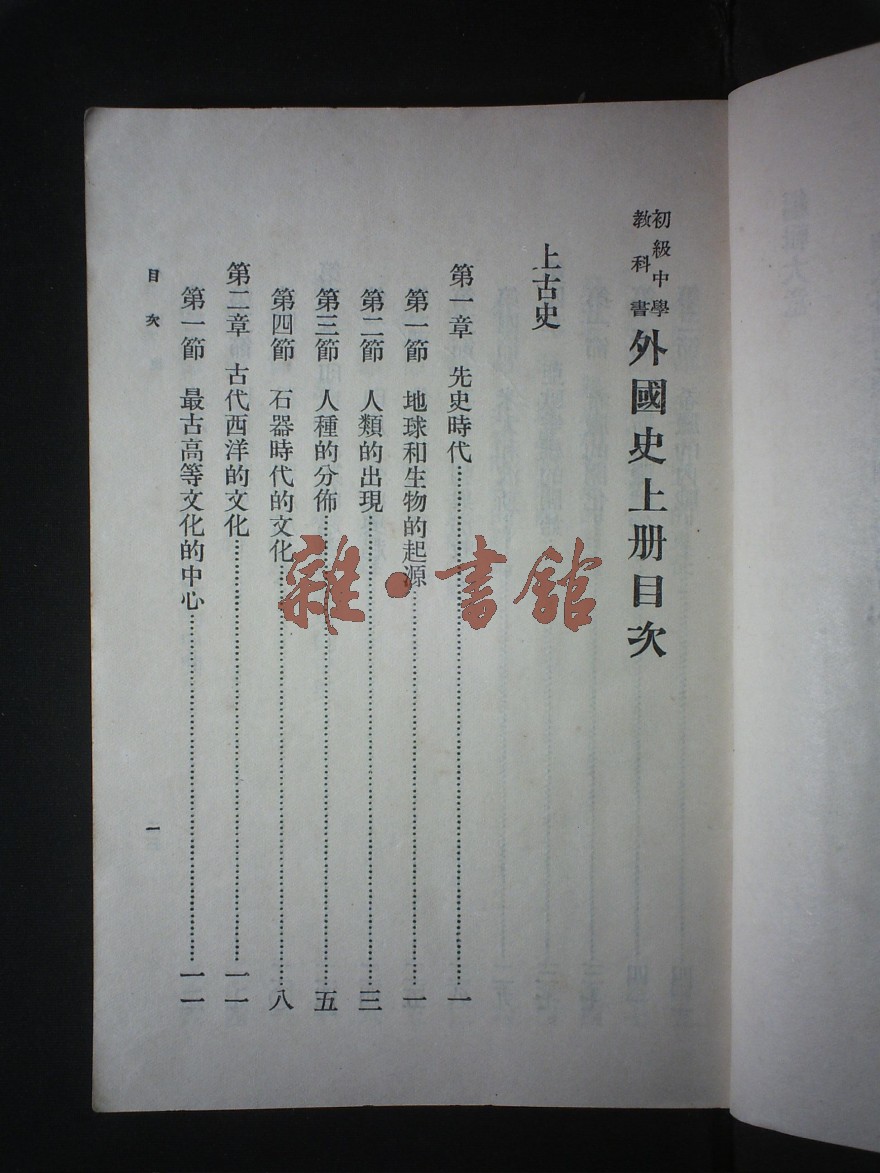 初級中學
教科書
外國史上册目次
上古史
第一章 先史時代……一
第一節 地球和生物的起源……一
第二節 人類的出現……三
第三節 人種的分佈……五
第四節 石器時代的文化……八
第二章 古代西洋的文化……一一
第一節 最古高等文化的中心……一一
目次 一
雜·書館